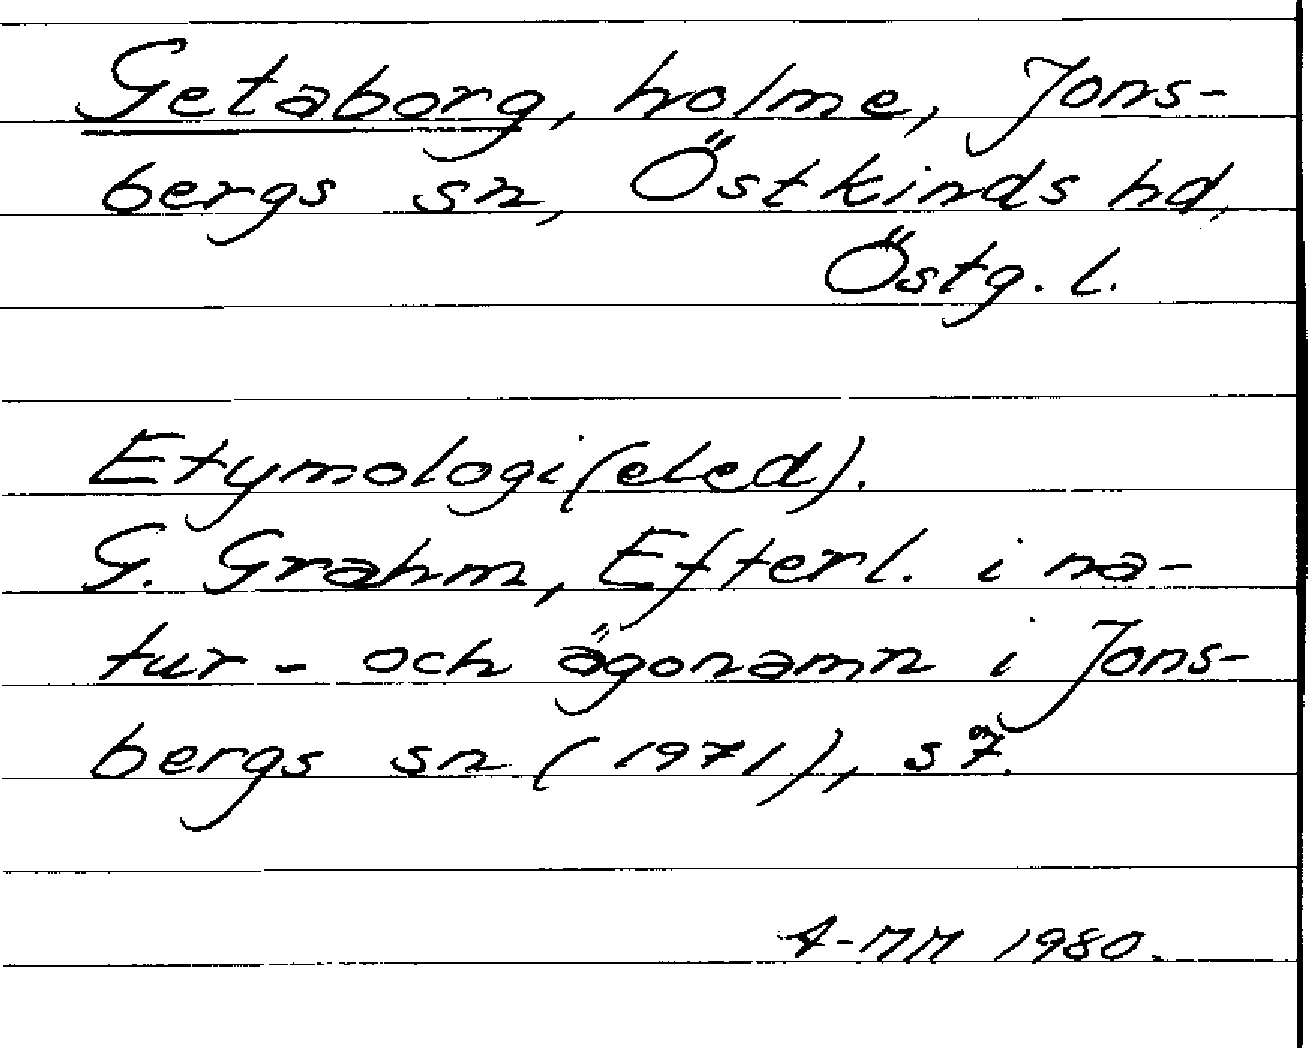 Getaborg, holme, Jons-
bergs sn, Östkinds hd,
Östg. l.
Etymologi(eled).
G. Grahm, Efterl. i na-
tur- och ägonamn i Jons-
bergs sn (1971), s 7.
A-MM 1980.